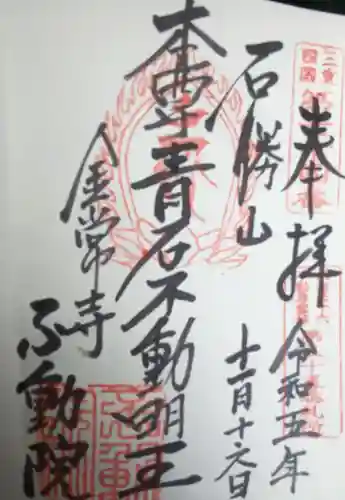 奉拝
令和五年
石勝山
十一月十六日
本尊青石不動明王
金常寺
不動院